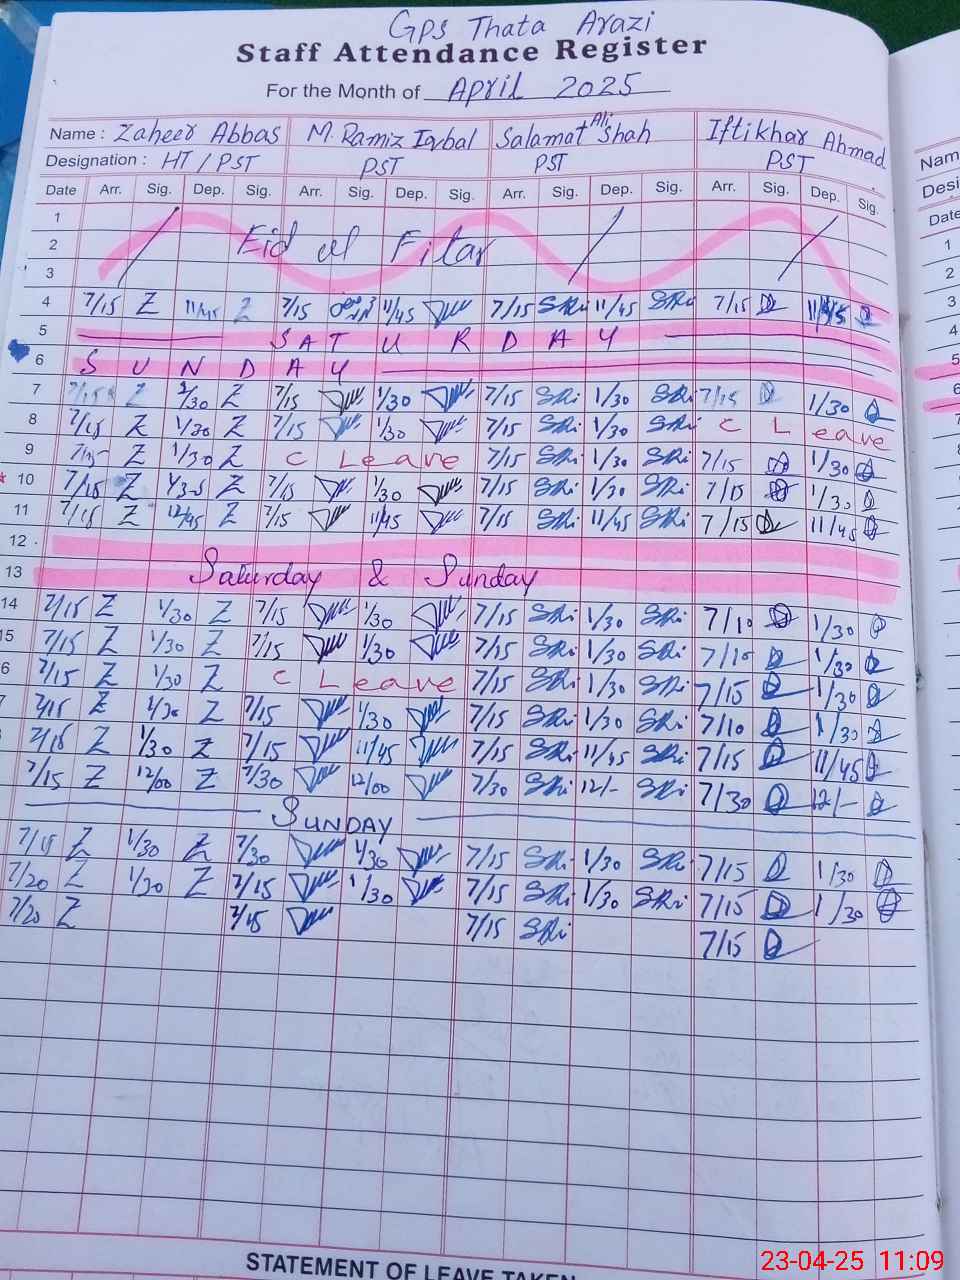 GPS Thata Arazi
Staff Attendance Register
For the Month of April 2025
Name : Zaheer Abbas M. Ramiz Iqbal Salamat Ali Shah Iftikhar Ahmad
Designation : HT / PST PST PST PST
Date Arr. Sig. Dep. Sig. Arr. Sig. Dep. Sig. Arr. Sig. Dep. Sig. Arr. Sig. Dep. Sig.
1
2 Eid ul Fitar
3
4 7/15 Z 11/45 Z 7/15 11/45 7/15 SRi 11/45 SRi 7/15 11/45
5 SATURDAY
6 SUNDAY
7 7/15 Z 1/30 Z 7/15 1/30 7/15 SRi 1/30 SRi 7/15 1/30
8 7/15 Z 1/30 Z 7/15 1/30 7/15 SRi 1/30 SRi C Leave
9 7/15 Z 1/30 Z C Leave 7/15 SRi 1/30 SRi 7/15 1/30
10 7/15 Z Z 7/15 1/30 7/15 SRi 1/30 SRi 7/15 1/30
11 7/15 Z 12/45 Z 7/15 11/45 7/15 SRi 11/45 SRi 7/15 11/45
12
13 Saturday & Sunday
14 7/15 Z 1/30 Z 7/15 1/30 7/15 SRi 1/30 SRi 7/10 1/30
15 7/15 Z 1/30 Z 7/15 1/30 7/15 SRi 1/30 SRi 7/10 1/30
6 7/15 Z 1/30 Z C Leave 7/15 SRi 1/30 SRi 7/15 1/30
7 7/15 Z 1/30 Z 7/15 1/30 7/15 SRi 1/30 SRi 7/10 1/30
7/15 Z 1/30 Z 7/15 11/45 7/15 SRi 11/45 SRi 7/15 11/45
7/15 Z 12/00 Z 7/30 12/00 7/30 SRi 12/- SRi 7/30 12/-
SUNDAY
7/15 Z 1/30 Z 7/30 1/30 7/15 SRi 1/30 SRi 7/15 1/30
7/20 Z 1/30 Z 7/15 1/30 7/15 SRi 1/30 SRi 7/15 1/30
7/20 Z 7/15 7/15 SRi 7/15
STATEMENT OF LEAVE TAKEN
23-04-25 11:09